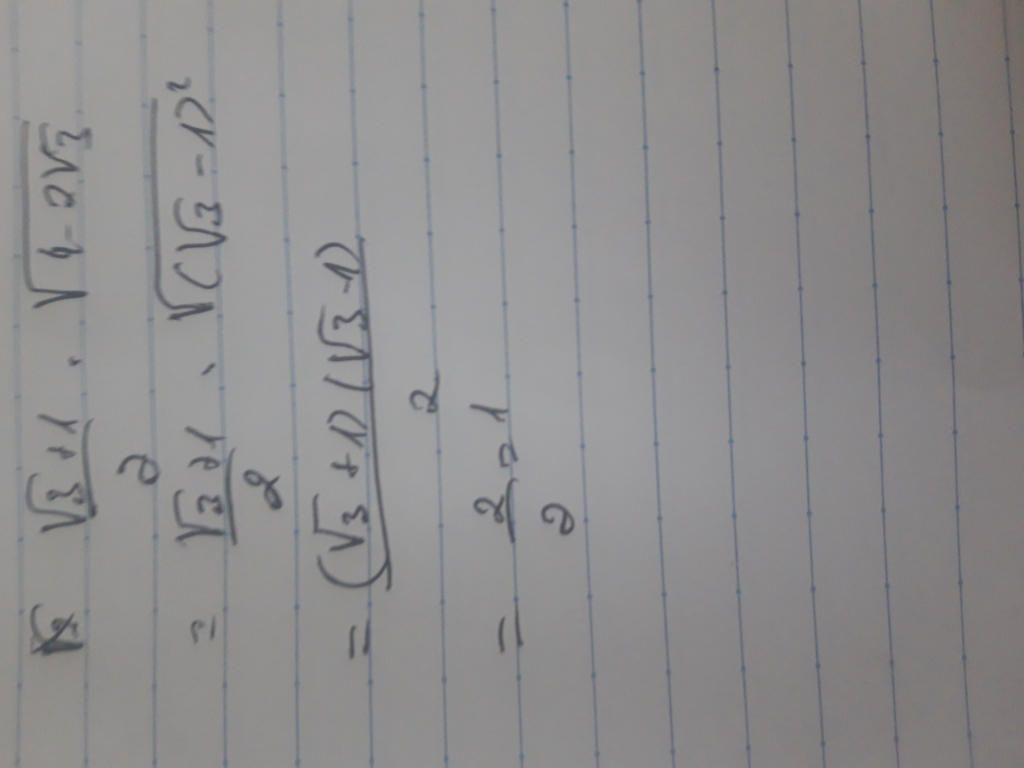 √3+1/2 . √(4-2√3)
= √3+1/2 . √(√3-1)²
= (√3+1)(√3-1)/2
= 2/2 = 1